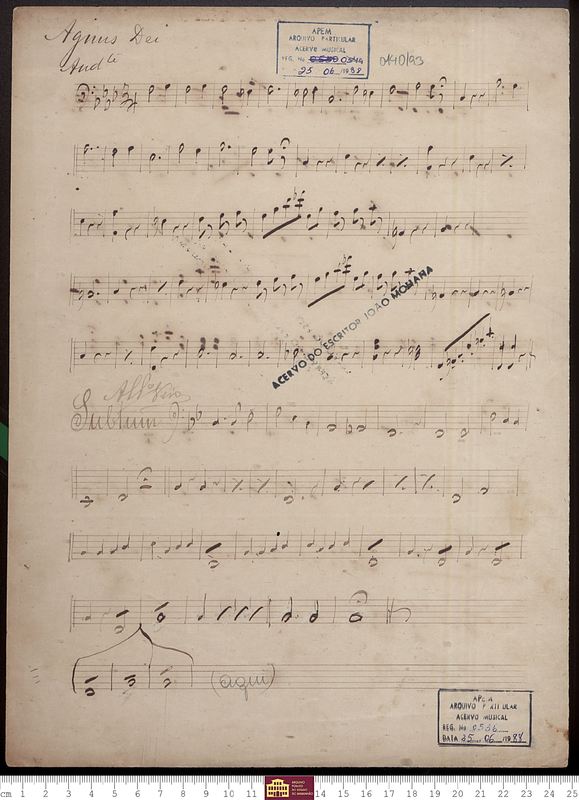 Agnus Dei
And.te
APEM
ARQUIVO PARTICULAR
ACERVO MUSICAL
REG. No 0544
25 06 1988
0140/93
ACERVO DO ESCRITOR JOÃO MOHANA
Subtuum
(aqui)
APEM
ARQUIVO PARTICULAR
ACERVO MUSICAL
REG. No 0536
DATA 25 06 1988
cm 1 2 3 4 5 6 7 8 9 10 11 12 13 14 15 16 17 18 19 20 21 22 23 24 25